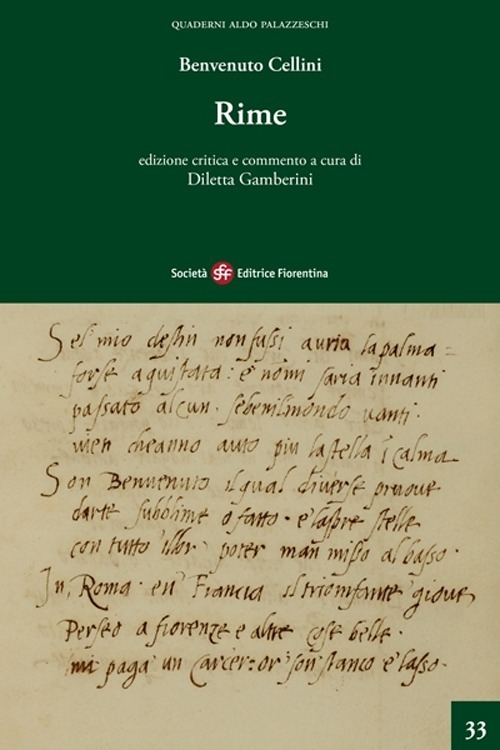 QUADERNI ALDO PALAZZESCHI
Benvenuto Cellini
Rime
edizione critica e commento a cura di
Diletta Gamberini
Società sff Editrice Fiorentina
Sel mio destin non fussi auria la palma
forse aquistata: e nomi saria innanti
passato alcun. sebenilmondo uanti.
men cheanno auto piu la stella i calma
Son Benuenuto il qual diuerse pruoue
darte subblime o fatto. e laspre stelle
con tutto illor poter man misso al basso.
In, Roma. en Francia il triomfante gioue,
Perseo a fiorenze e altre cose belle.
mi paga un carcer: or son stanco e lasso.
33